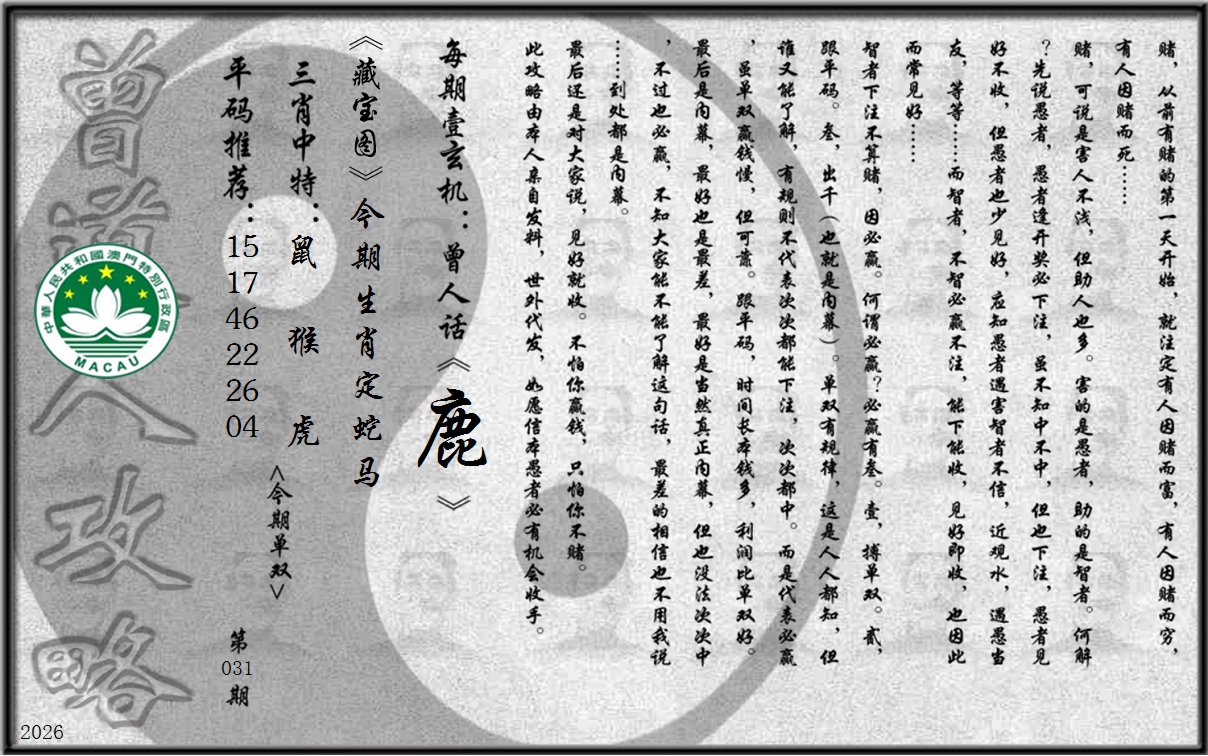 赌，从前有赌的第一天开始，就注定有人因赌而富，有人因赌而穷，
有人因赌而死……
赌，可说是害人不浅，但助人也多。害的是愚者，助的是智者。何解
？先说愚者，愚者逢开奖必下注，虽不知中不中，但也下注，愚者见
好不收，但愚者也少见好，应知愚者遇害智者不信，近观水，遇愚当
友，等等……而智者，不智必赢不注，能下能收，见好即收，也因此
而常见好……
智者下注不算赌，因必赢。何谓必赢？必赢有叁。壹，搏单双。贰，
跟平码。叁，出千（也就是内幕）。单双有规律，这是人人都知，但
谁又能了解，有规则不代表次次都能下注，次次都中。而是代表必赢
，虽单双赢钱慢，但可靠。跟平码，时间长本钱多，利润比单双好。
最后是内幕，最好也是最差，最好是当然真正内幕，但也没法次次中
，不过也必赢，不知大家能不能了解这句话，最差的相信也不用我说
……到处都是内幕。
最后还是对大家说，见好就收。不怕你赢钱，只怕你不赌。
此攻略由本人亲自发料，世外代发，如愿信本愚者必有机会收手。
每期壹玄机：曾人话《鹿》
《藏宝图》今期生肖定蛇马
三肖中特：鼠 猴 虎
<今期单双>
平码推荐：15 17 46 22 26 04
第031期
曾道人攻略
中華人民共和國澳門特別行政區
MACAU
2026